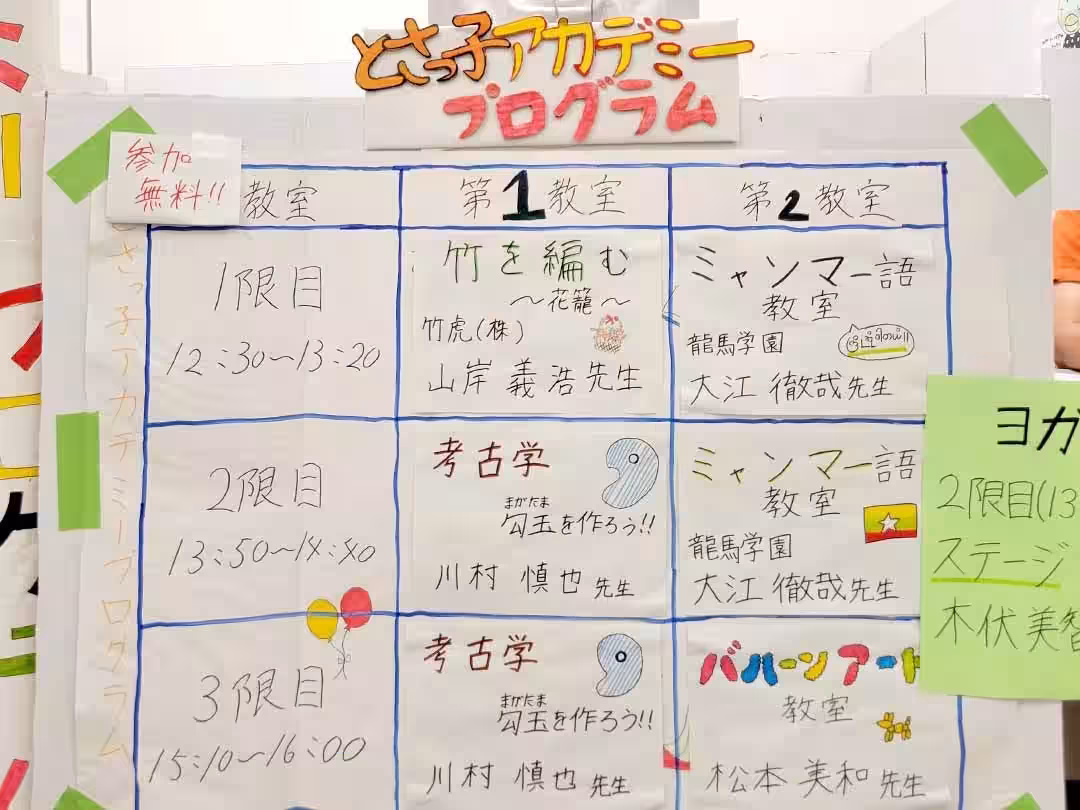 とさっ子アカデミー
プログラム
参加
無料!!
教室
第1教室
第2教室
さっ子アカデミープログラム
1限目
12:30〜13:20
竹を編む
〜花籠〜
竹虎(株)
山岸 義浩先生
ミャンマー語
教室
龍馬学園
大江 徹哉先生
2限目
13:50〜14:40
考古学
まがたま
勾玉を作ろう!!
川村 慎也 先生
ミャンマー語
教室
龍馬学園
大江 徹哉先生
ヨガ
2限目(13
ステージ
木伏美智
3限目
15:10〜16:00
考古学
まがたま
勾玉を作ろう!!
川村 慎也 先生
バルーンアート
教室
松本 美和 先生